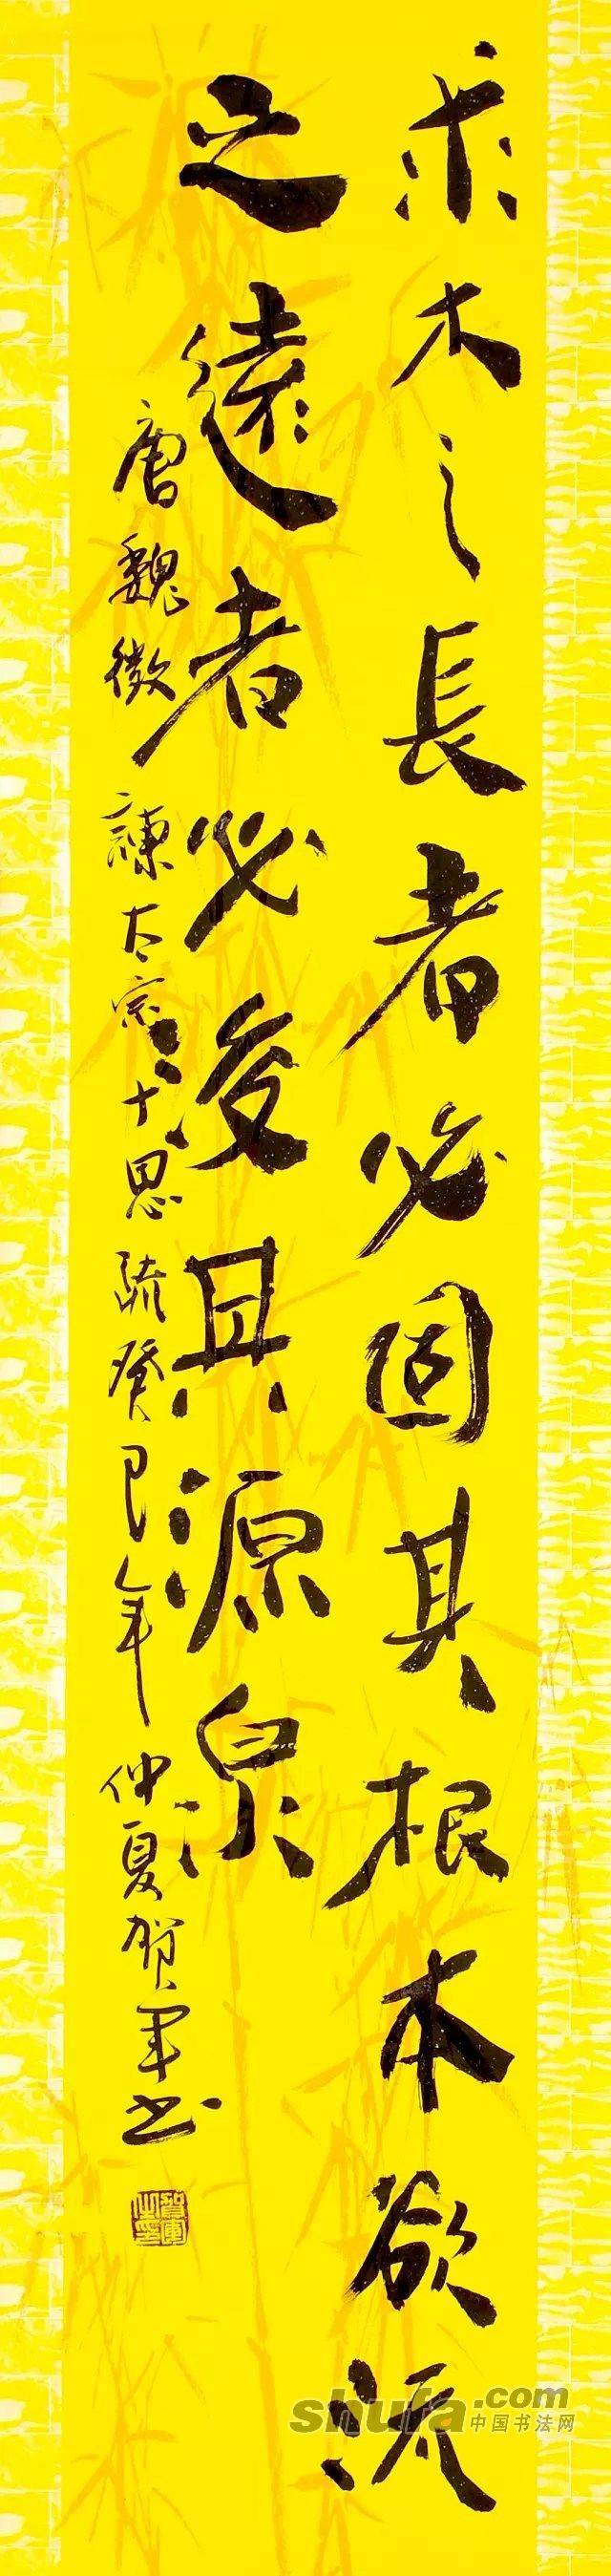 求木之長者必固其根本欲流
之遠者必浚其源泉
唐魏徵諫太宗十思疏癸巳年仲夏贺军书
賀軍之印
shufa.com
中国书法网